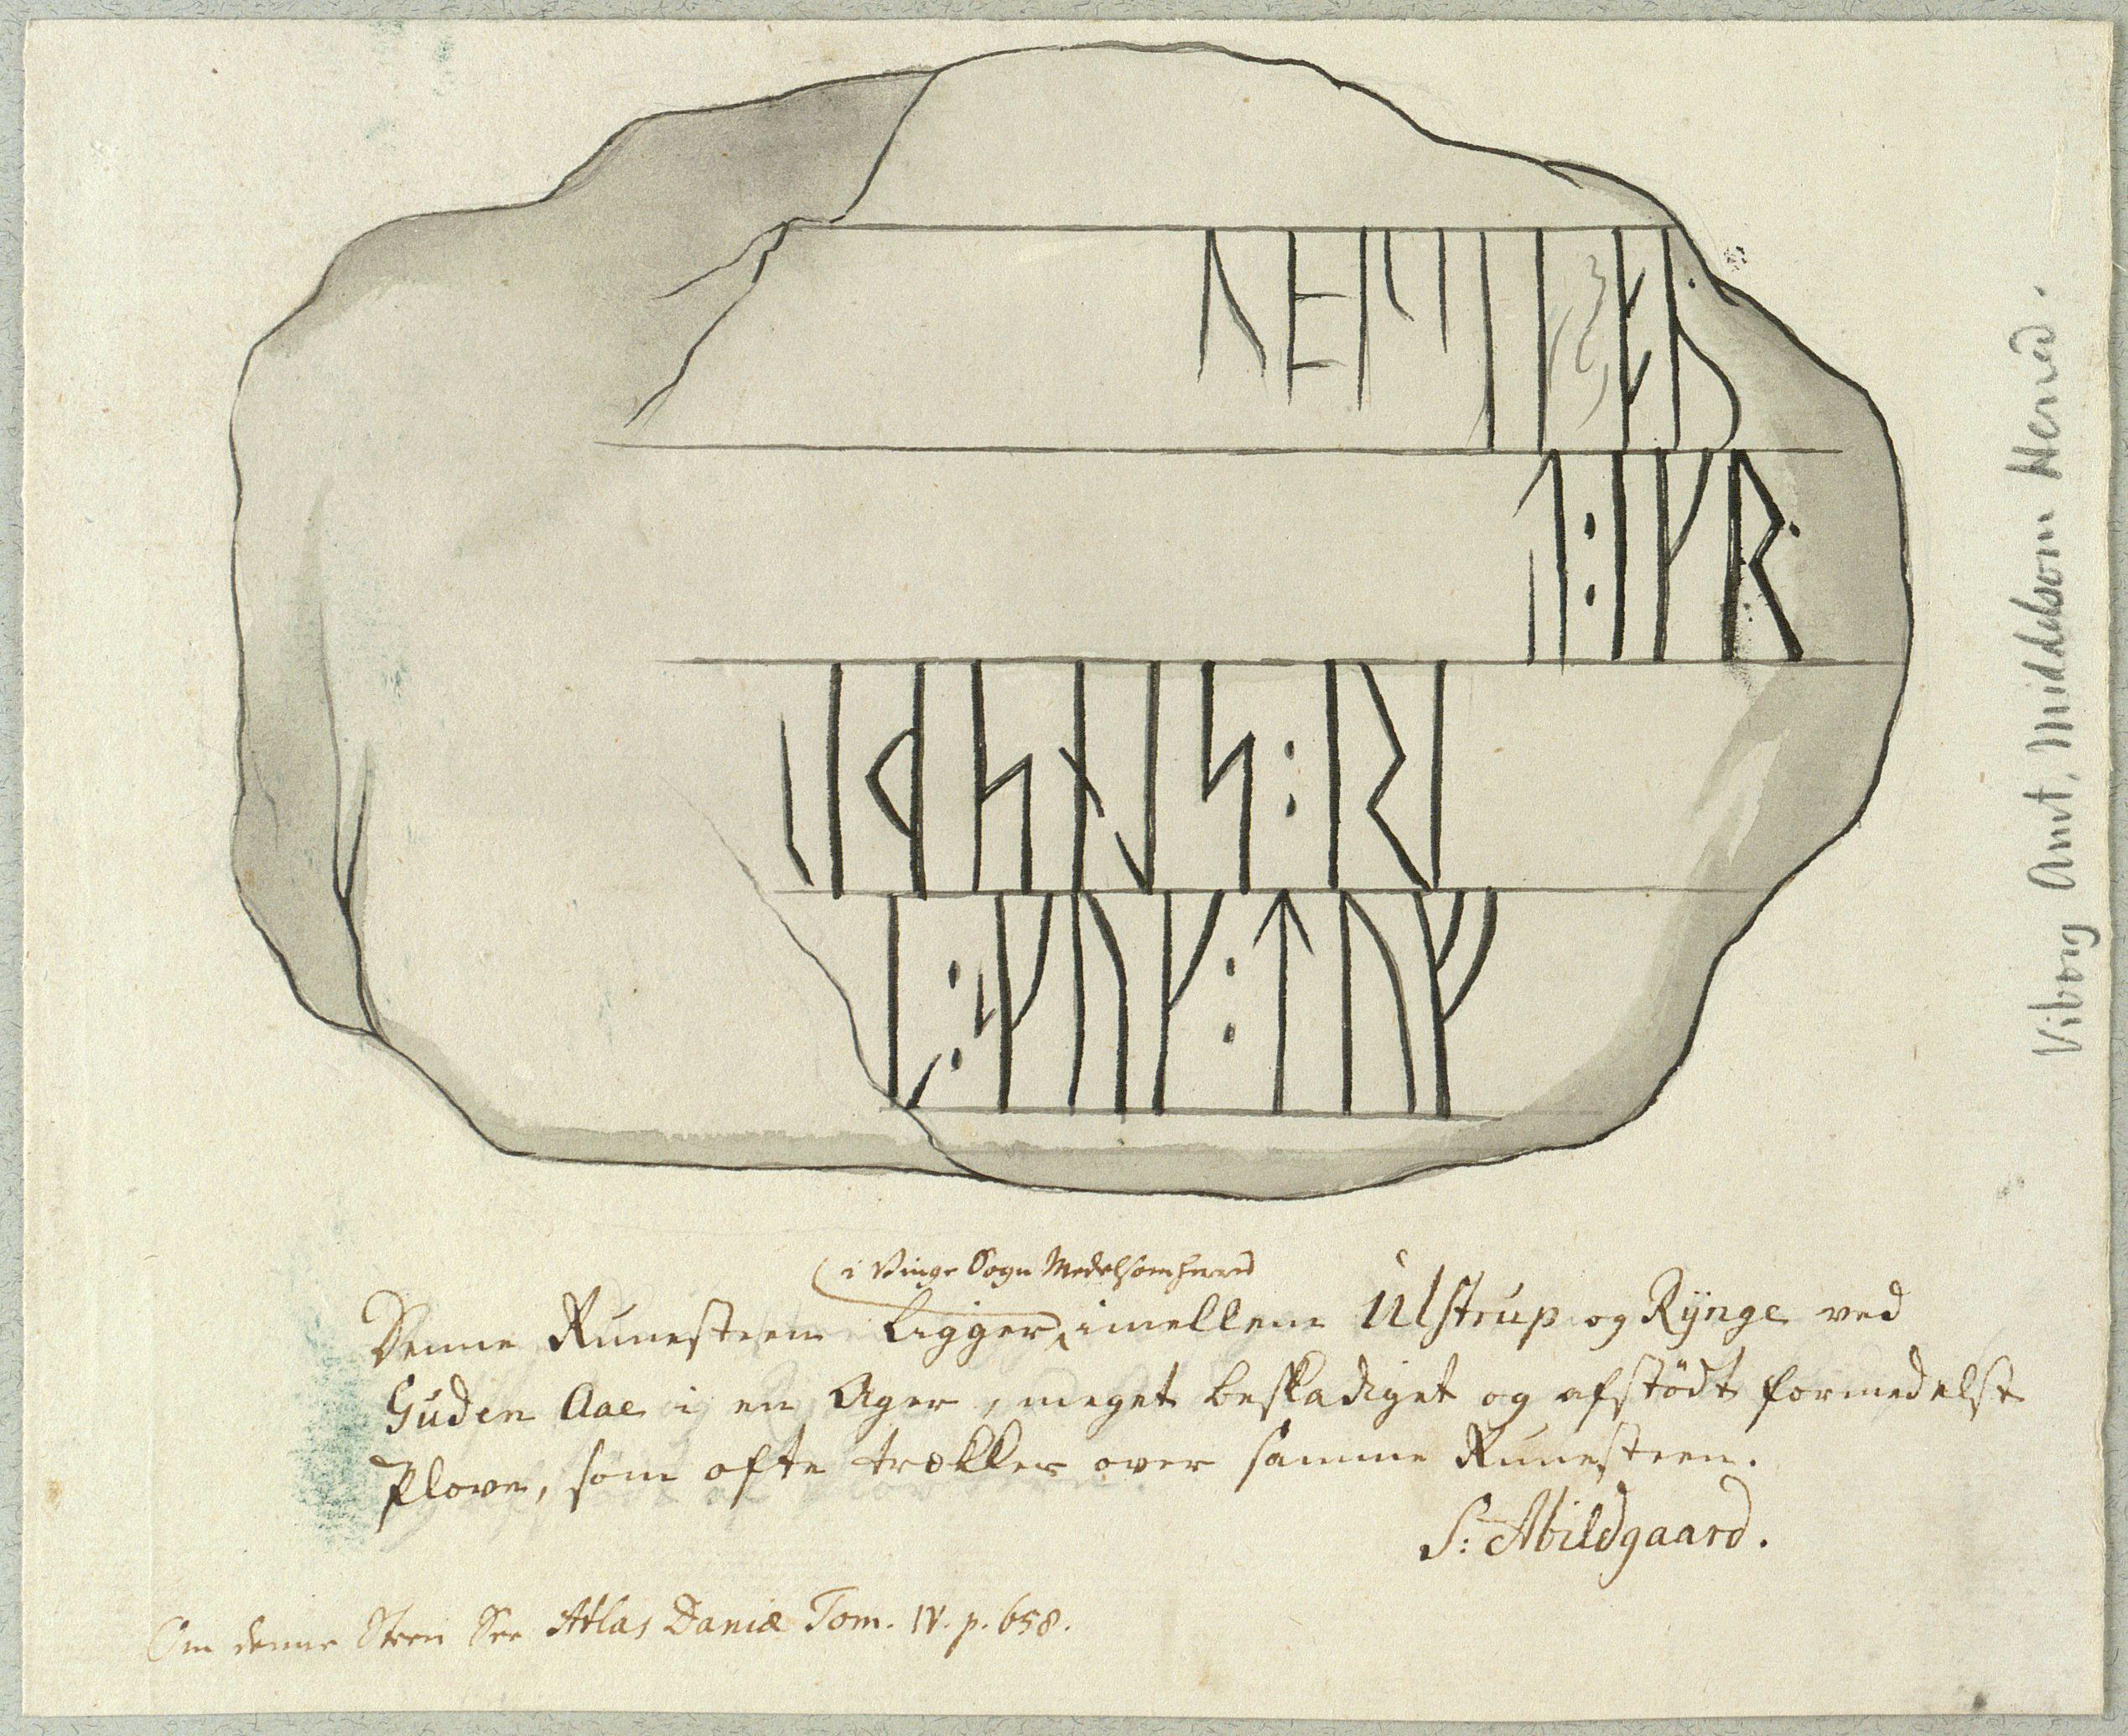 ᛬ᛁᚴᚱ
ᚴᚢᚴ᛬ᛏᚢᚠ
Viborg Amt, Middelsom Herred.
i Vinge Sogn Medelsom herred
Denne Runesteen Ligger imellem Ulstrup og Rÿnge ved
Guden Aae i en Ager, meget beskadiget og afstödt formedelst
Plove, som ofte trækker over samme Runesteen.
S: Abildgaard.
Om denne Steen See Atlas Daniæ Tom. IV. p. 658.